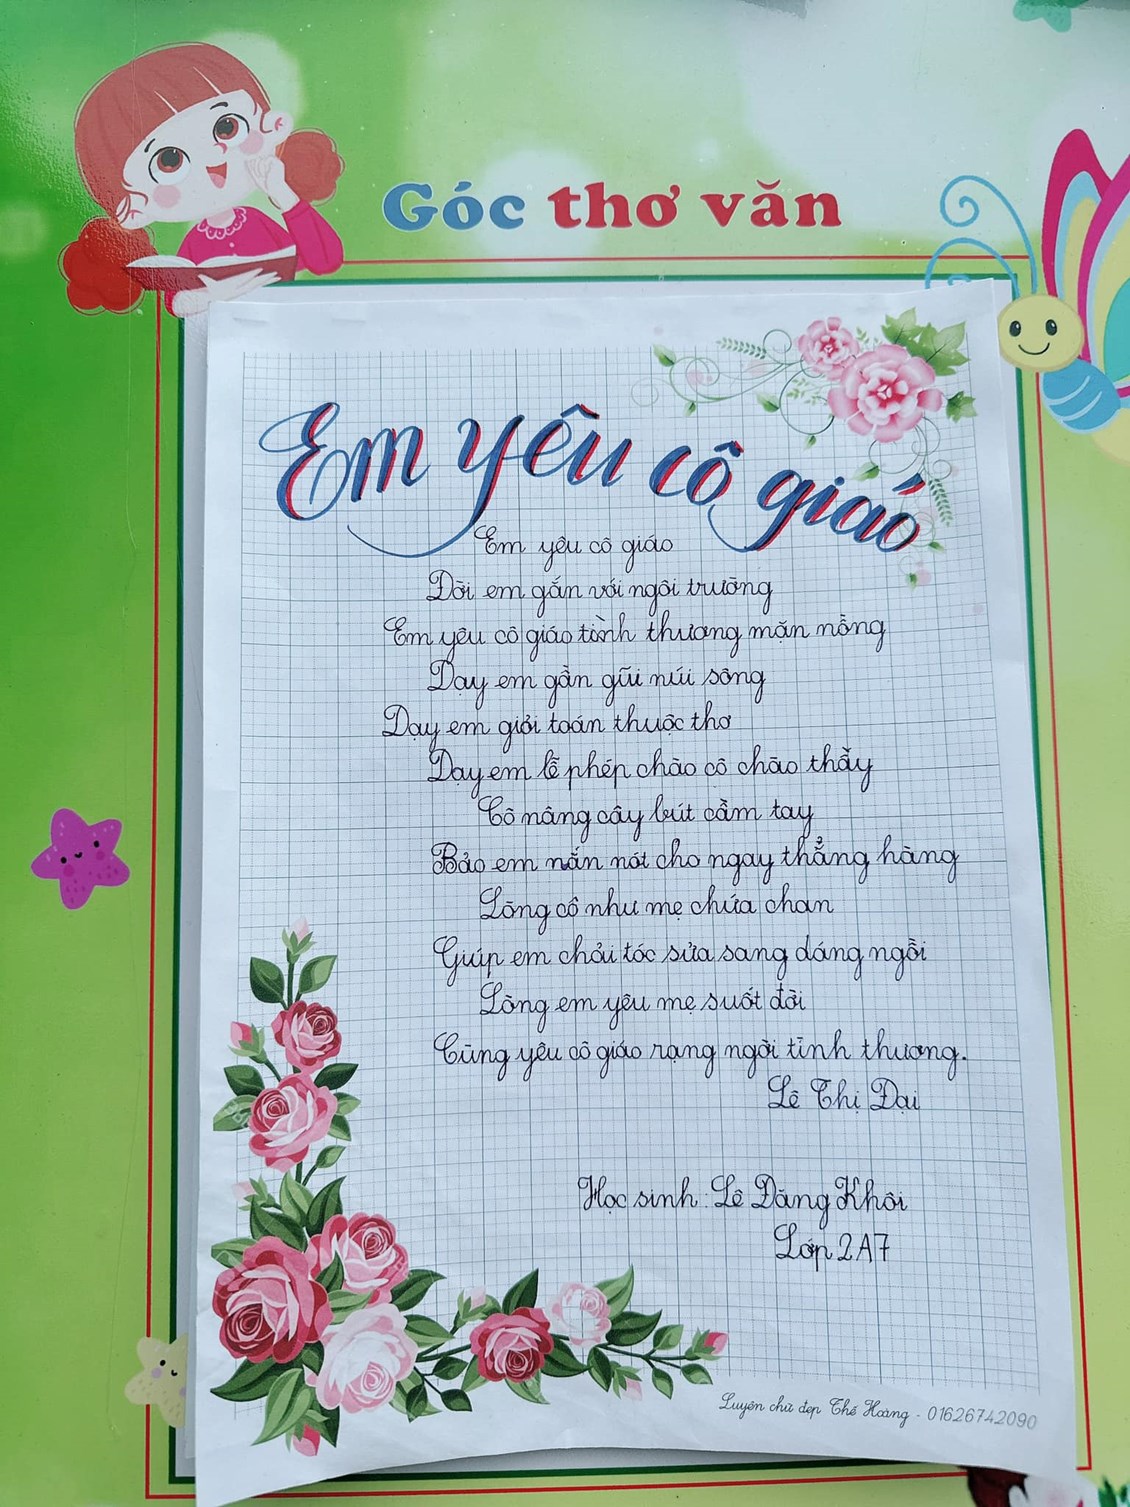 Góc thơ văn
Em yêu cô giáo
Em yêu cô giáo
Đời em gắn với ngôi trường
Em yêu cô giáo tình thương mặn nồng
Dạy em gần gũi núi sông
Dạy em giỏi toán thuộc thơ
Dạy em lễ phép chào cô chào thầy
Cô nâng cây bút cầm tay
Bảo em nắn nót cho ngay thẳng hàng
Lòng cô như mẹ chứa chan
Giúp em chải tóc sửa sang dáng ngồi
Lòng em yêu mẹ suốt đời
Cũng yêu cô giáo rạng ngời tình thương.
Lê Thị Đại
Học sinh: Lê Đăng Khôi
Lớp 2A7
Luyện chữ đẹp Thế Hoàng - 01626742090